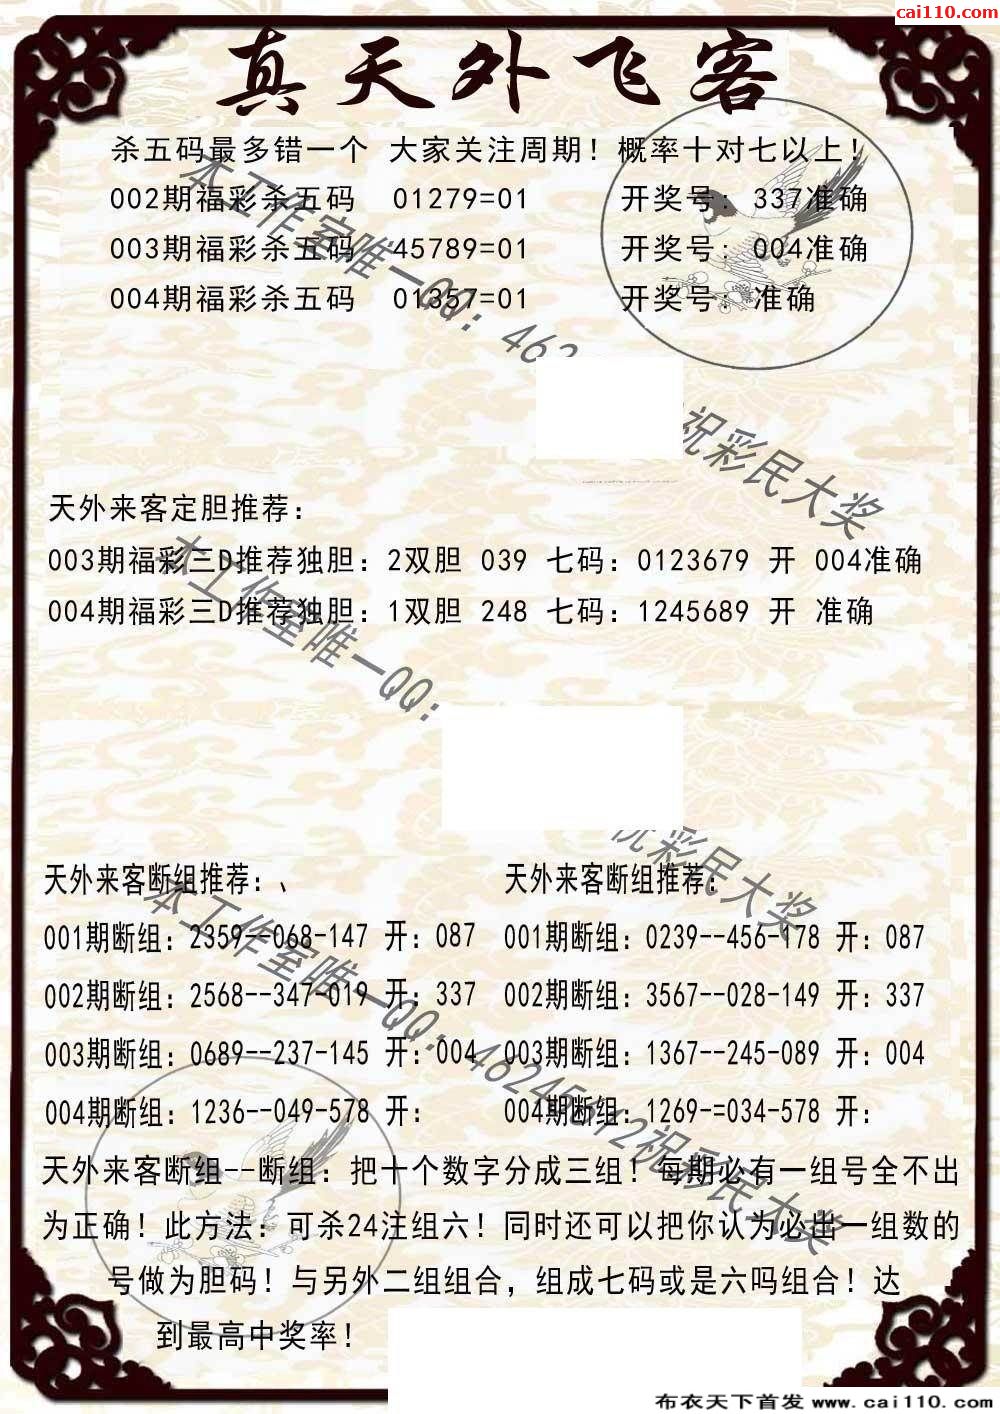 cai110.com
真天外飞客
杀五码最多错一个 大家关注周期！概率十对七以上！
002期福彩杀五码 01279=01 开奖号：337准确
003期福彩杀五码 45789=01 开奖号：004准确
004期福彩杀五码 01357=01 开奖号：准确
本工作室唯一QQ：462
祝彩民大奖
天外来客定胆推荐：
003期福彩三D推荐独胆：2双胆 039 七码：0123679 开 004准确
004期福彩三D推荐独胆：1双胆 248 七码：1245689 开 准确
本工作室唯一QQ：
祝彩民大奖
天外来客断组推荐：、 天外来客断组推荐：
001期断组：2359--068-147 开：087 001期断组：0239--456-178 开：087
002期断组：2568--347-019 开：337 002期断组：3567--028-149 开：337
003期断组：0689--237-145 开：004 003期断组：1367--245-089 开：004
004期断组：1236--049-578 开： 004期断组：1269-=034-578 开：
本工作室唯一QQ：祝彩民大奖
天外来客断组--断组：把十个数字分成三组！每期必有一组号全不出
为正确！此方法：可杀24注组六！同时还可以把你认为必出一组数的
号做为胆码！与另外二组组合，组成七码或是六吗组合！达
到最高中奖率！
布衣天下首发 www.cai110.com